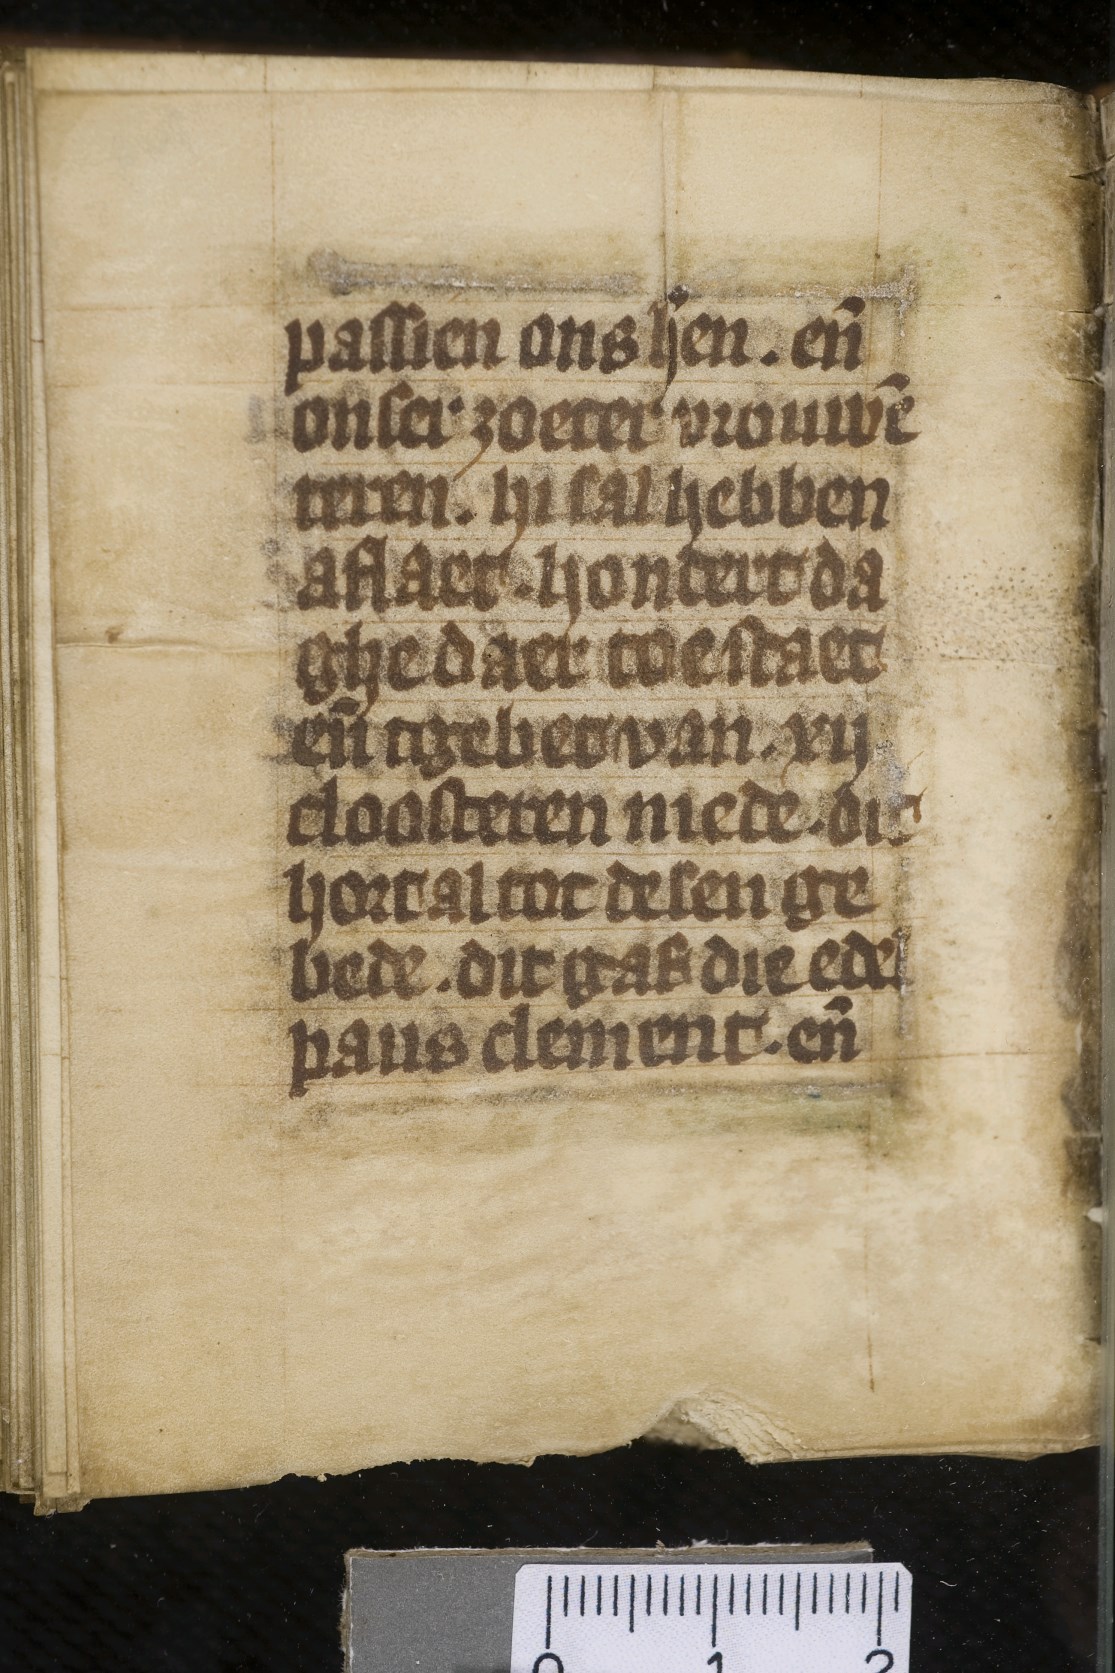 passien ons h̄en . en̄
onser zoeter vrouwē
teren . hi sal hebben
aflaet . hondert da
ghe daer toe staet
en̄ tgebet van . xij
cloosteren mede . dit
hort al tot desen ge
bede . dit gaf die edel
paus clement . en̄
0 1 2